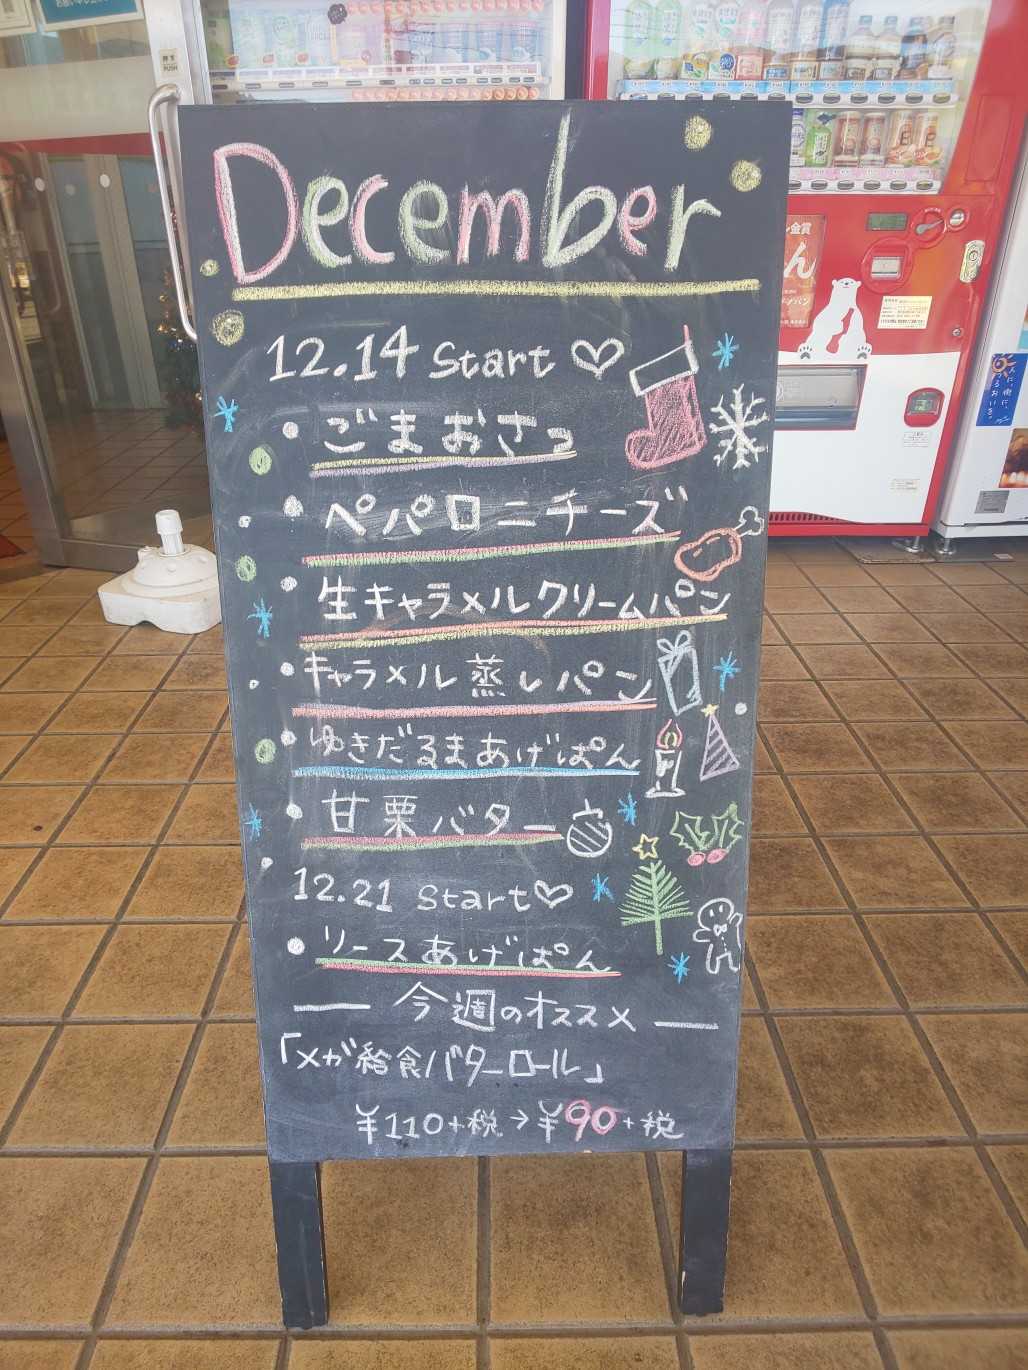 December
12.14 Start ♡
・ごまおさつ
・ペパロニチーズ
・生キャラメルクリームパン
・キャラメル蒸しパン
・ゆきだるまあげぱん
・甘栗バター
12.21 Start♡
・リースあげぱん
― 今週のオススメ ―
「メガ給食バターロール」
¥110+税→¥90+税